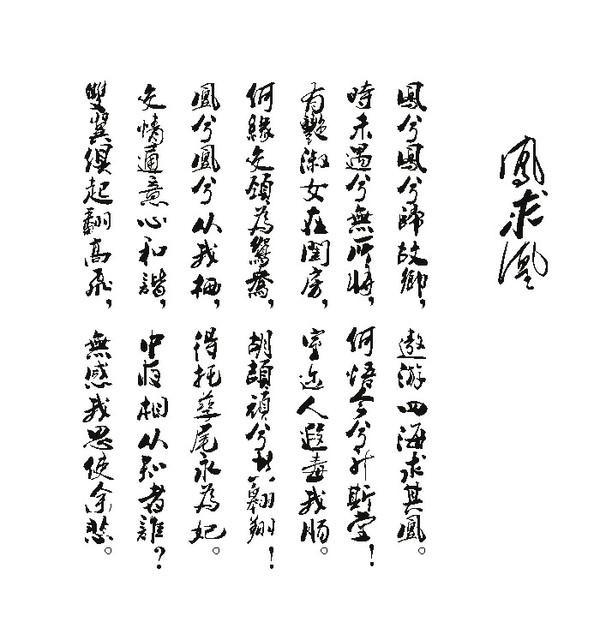 鳳求凰
鳳兮鳳兮歸故鄉,遨游四海求其凰。
時未遇兮無所將,何悟今兮升斯堂!
有艷淑女在閨房,室迩人遐毒我腸。
何緣交頸為鴛鴦,胡頡頏兮共翱翔!
凰兮凰兮从我栖,得托孳尾永為妃。
交情通意心和諧,中夜相从知者誰?
雙翼俱起翻高飛,無感我思使余悲。